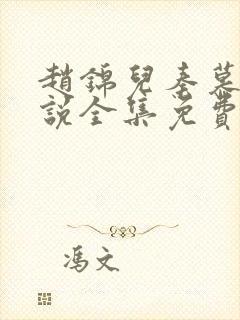 趙錦兒秦慕
說全集免費
馮文